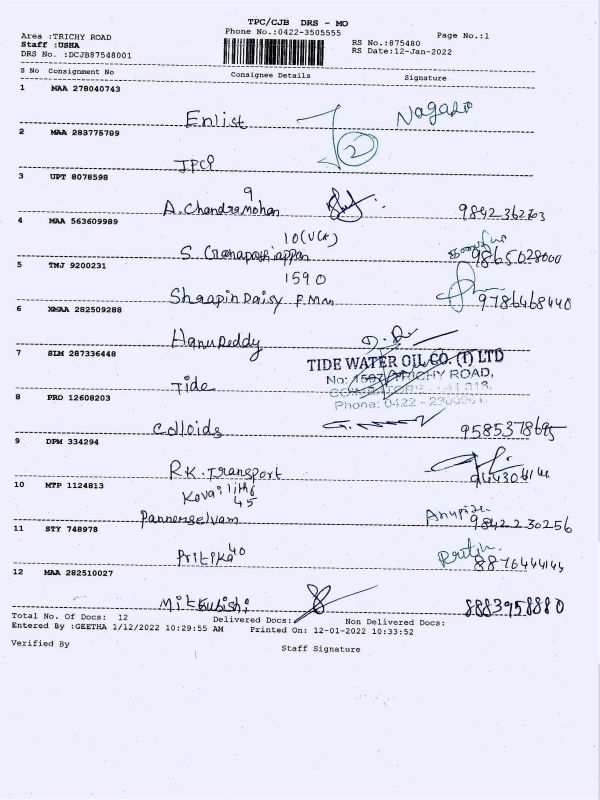 TPC/CJB DRS - MO
Area :TRICHY ROAD
Phone No.:0422-3505555
Page No.:1
Staff :USHA
RS No.:875480
DRS No. :DCJB87548001
RS Date:12-Jan-2022
S No Consignment No Consignee Details Signature
1 MAA 278040743
Enlist Nagaraj
2 MAA 283775789
2
JPCP
3 UPT 8078598
9
A. Chandra Mohan 9842362703
4 MAA 563609989
10(UCt)
S. Ganapathiappan 9865028000
5 TMJ 9200231
1590
Sharpin Daisy P.Man 9786468440
6 XMAA 282509288
Hanu Reddy
7 SLM 287336448
TIDE WATER OIL CO. (I) LTD
No: 1597, TRICHY ROAD,
Tide
Phone: 0422 -
8 PRO 12608203
Colloids 9585378695
9 DPM 334294
RK. Transport
10 MTP 1124813
Kovai litho
45
Pannerselvam 9842230256
11 STY 748978
Pritika 40 8876444144
12 MAA 282510027
Mitsubishi 8883958880
Total No. Of Docs: 12 Delivered Docs: Non Delivered Docs:
Entered By :GEETHA 1/12/2022 10:29:55 AM Printed On: 12-01-2022 10:33:52
Verified By Staff Signature